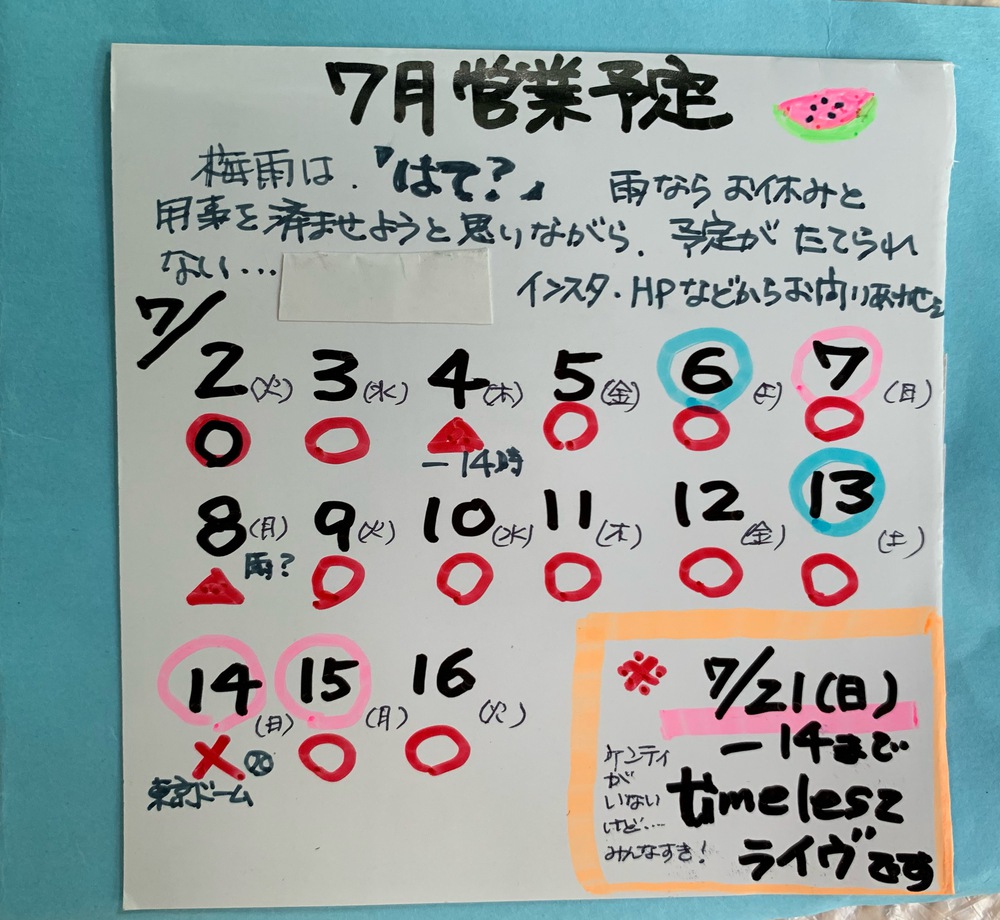 7月営業予定
梅雨は.『はて?』 雨ならお休みと
用事を済ませようと思いながら、予定がたてられ
ない…
インスタ・HPなどからお問いあわせを
7/
2(火) 3(水) 4(木) 5(金) 6(土) 7(日)
○ ○ ▲ ○ ○ ○
ー14時
8(月) 9(火) 10(水) 11(木) 12(金) 13(土)
▲ 雨? ○ ○ ○ ○ ○
14(日) 15(月) 16(火)
× ○ ○
東京ドーム
※ 7/21(日)
ー14まで
timelesz
ライヴです
ケンティ
が
いない
けど…
みんなすき!